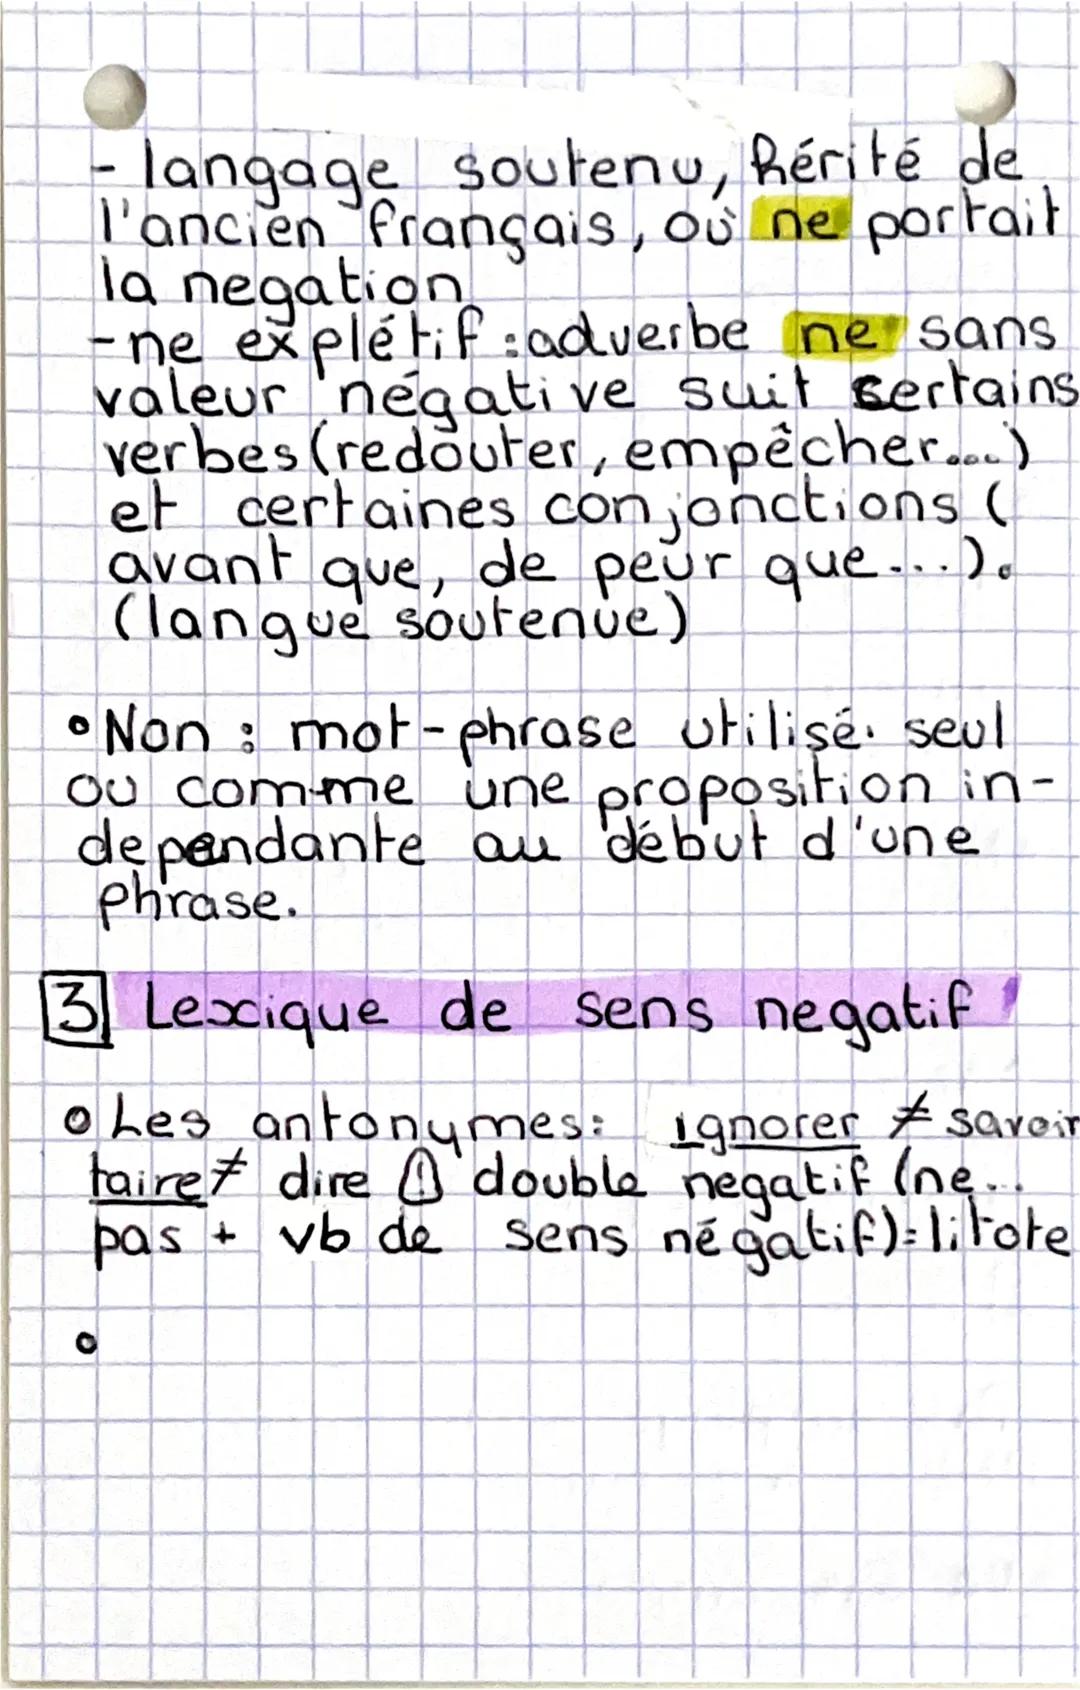 - langage soutenu, hérité de
l'ancien français, où ne portait
la negation
- ne explétif : adverbe ne sans
valeur négative suit certains
verbes (redouter, empêcher....)
et certaines conjonctions (
avant que, de peur que...).
(langue soutenue)
• Non : mot-phrase utilisé seul
ou comme une proposition in-
dependante au début d'une
phrase.
3 Lexique de sens negatif
• Les antonymes: ignorer ≠ savoir
taire ≠ dire ⚠ double negatif (ne...
pas + vb de sens négatif) = litote
•